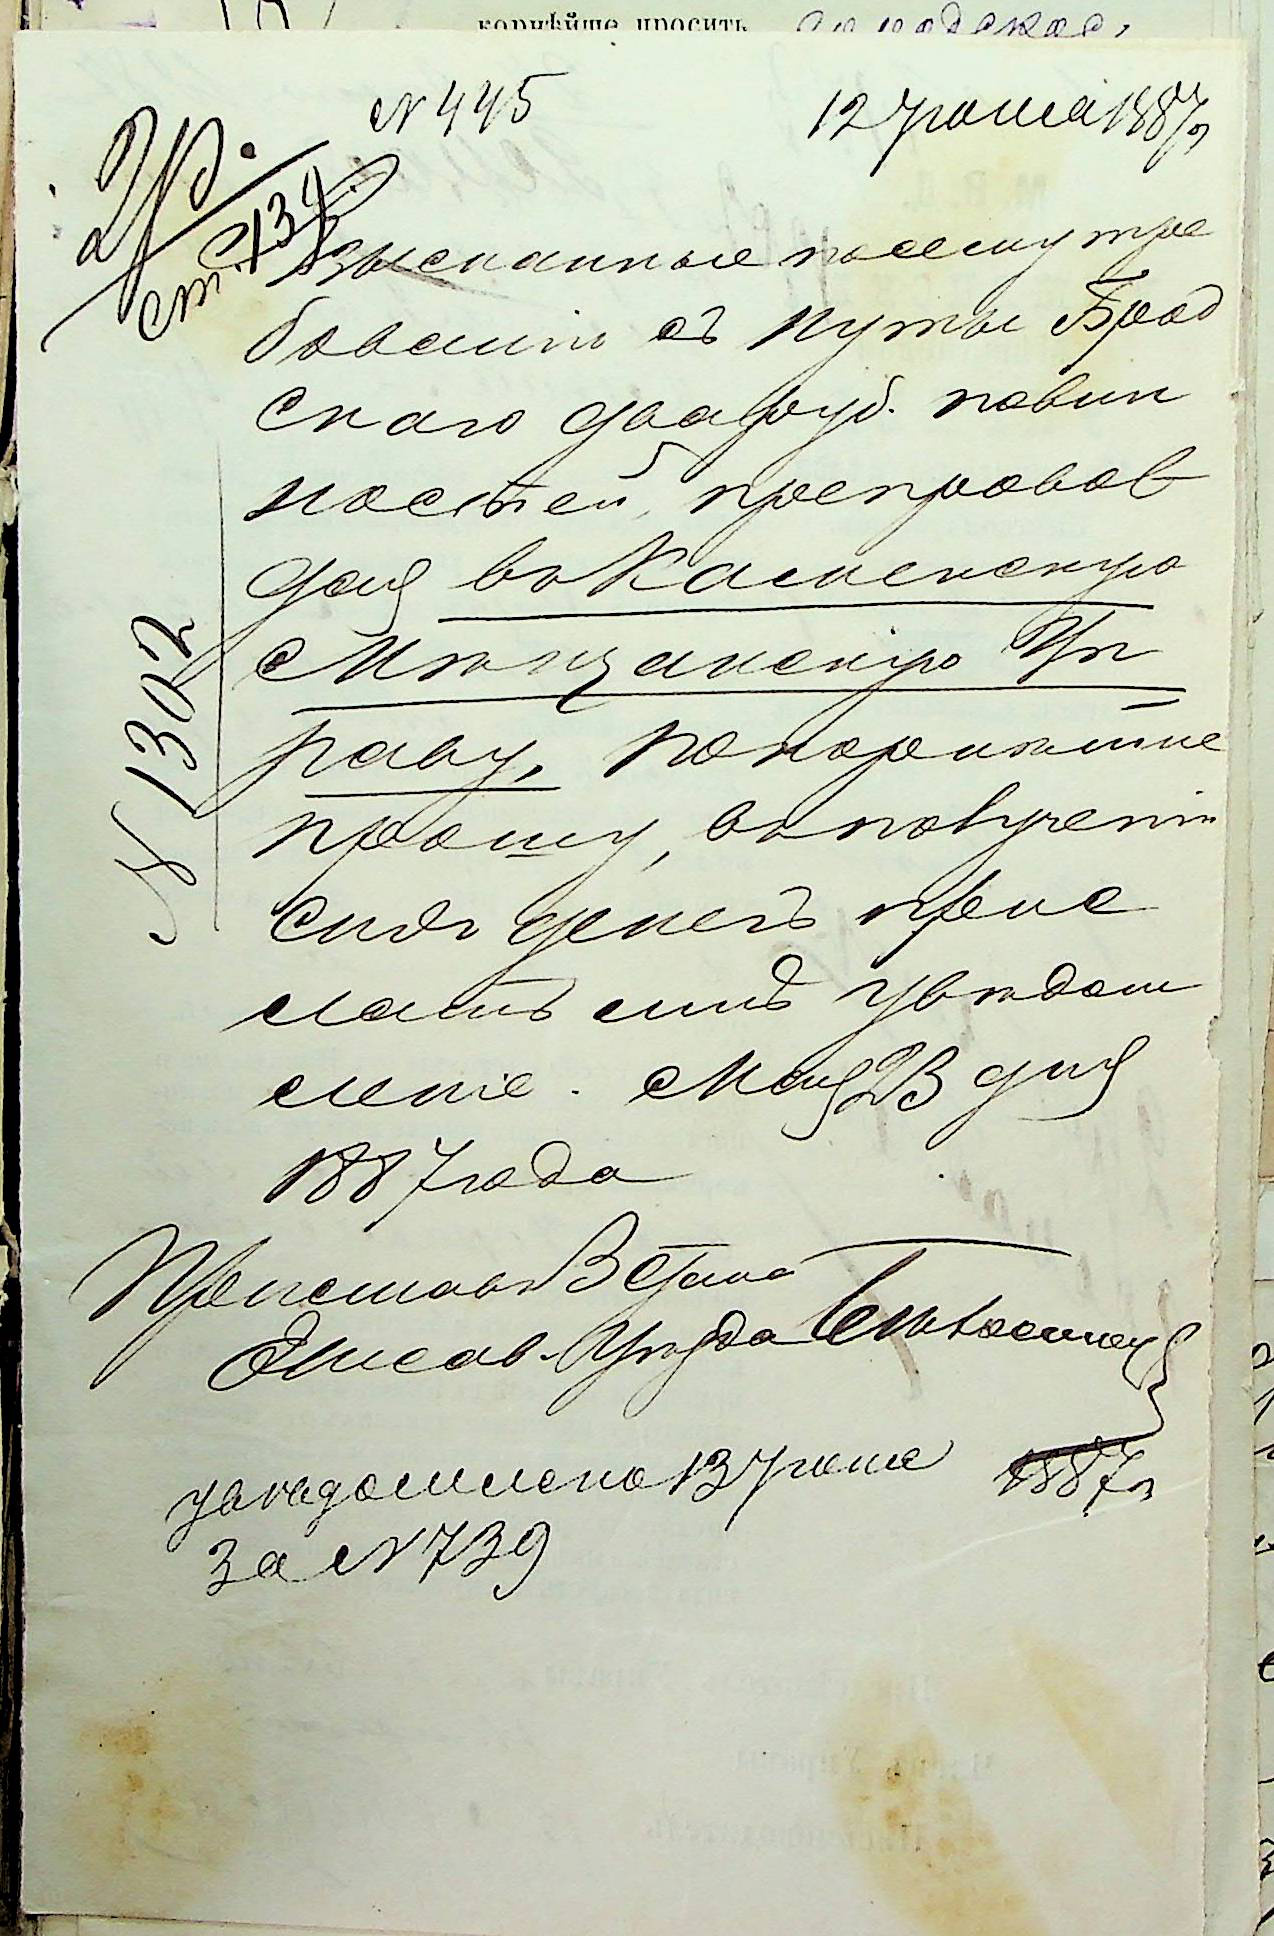 корнѣйше просить
№ 445
12 Июня 1887 г
2 р.
ст. 134.
Взысканные по сему тре
бованію съ Муты Брод
скаго два руб. повин
ностей, препровож
дая въ Каменскую
Мѣщанскую Уп
раву, покорнѣйше
прошу, въ полученіи
сихъ денегъ прис
лать мнѣ увѣдом
леніе. Мая 23 дня
1887 года
№ 1302
Приставъ 3 Стана
Елисав. Уѣзда
увѣдомлено 13 Июня 1887 г
За № 739